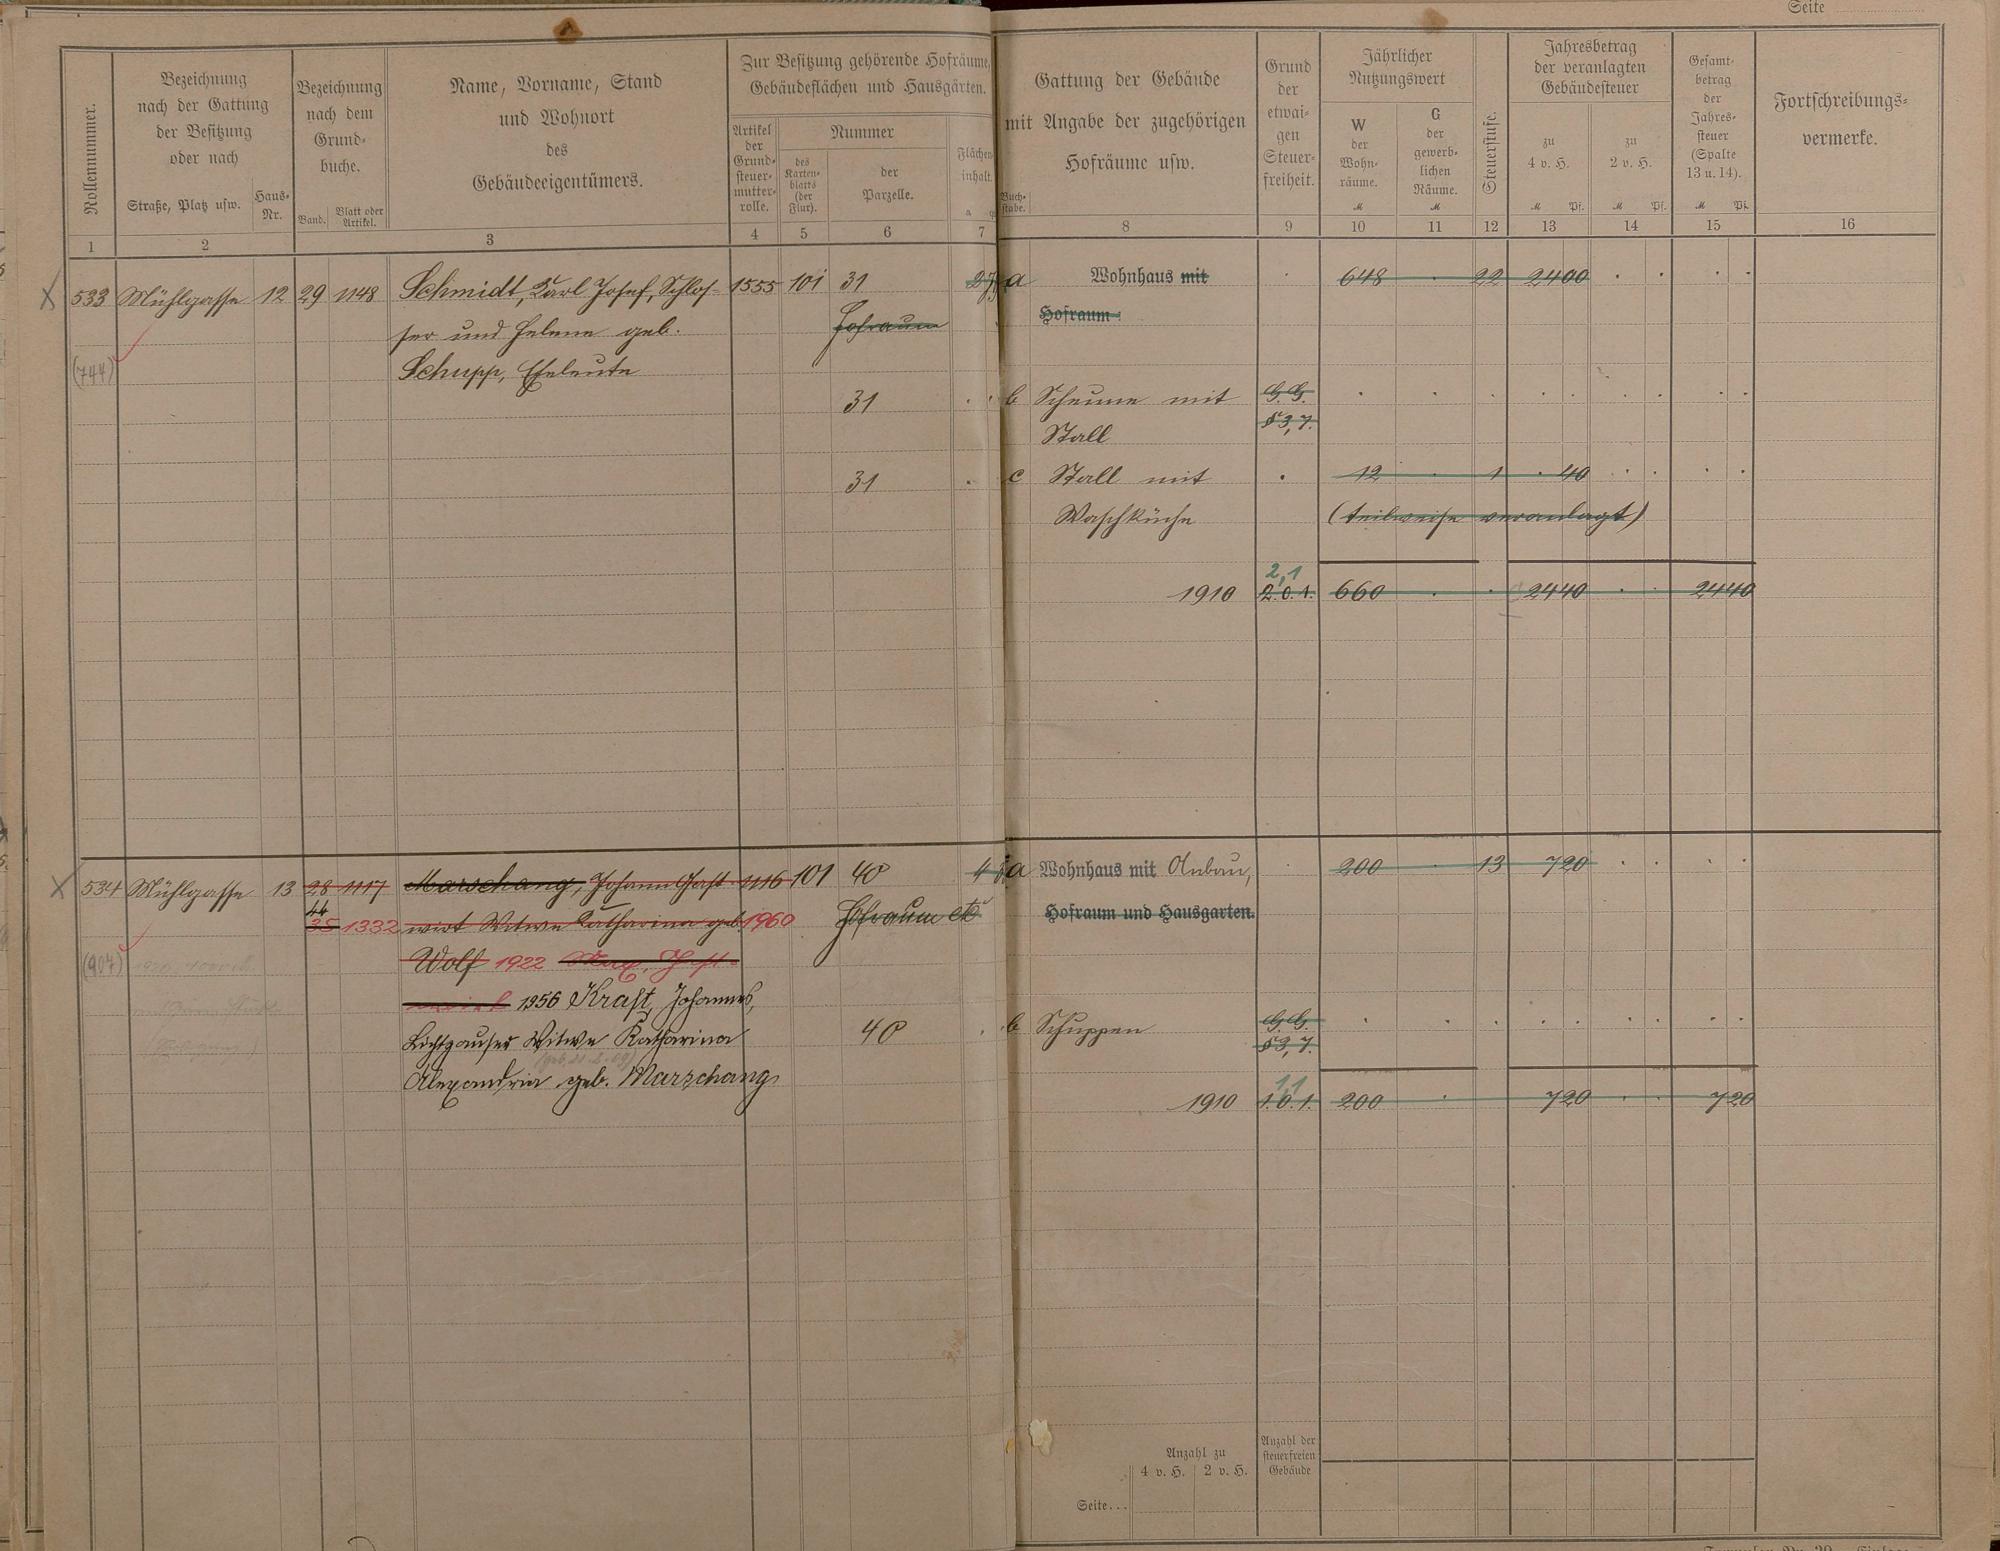 Seite
Rollennummer.
Bezeichnung
nach der Gattung
der Besitzung
oder nach
Straße, Platz usw.
Haus-
Nr.
Bezeichnung
nach dem
Grund-
buche.
Band.
Blatt oder
Artikel.
Name, Vorname, Stand
und Wohnort
des
Gebäudeeigentümers.
Zur Besitzung gehörende Hofräume,
Gebäudeflächen und Hausgärten.
Artikel
der
Grund-
steuer-
mutter-
rolle.
Nummer
des
Karten-
blatts
(der
Flur).
der
Parzelle.
Flächen-
inhalt.
a
Buch-
stabe.
Gattung der Gebäude
mit Angabe der zugehörigen
Hofräume usw.
Grund
der
etwai-
gen
Steuer-
freiheit.
Jährlicher
Nutzungswert
W
der
Wohn-
räume.
M
G
der
gewerb-
lichen
Räume.
M
Steuerstufe.
Jahresbetrag
der veranlagten
Gebäudesteuer
zu
4 v. H.
M Pf.
zu
2 v. H.
M Pf.
Gesamt-
betrag
der
Jahres-
steuer
(Spalte
13 u. 14).
M Pf.
Fortschreibungs-
vermerke.
1 2 3 4 5 6 7 8 9 10 11 12 13 14 15 16
X 533 Mühlgasse 12 29 1148 Schmidt, Karl Josef, Schlos- 1555 101 31 27 a Wohnhaus mit 648 22 2400
ser und Helene geb. Hofraum Hofraum.
(744) Schupp, Eheleute
31 b Scheune mit G.G.
Stall § 3,7.
31 c Stall mit 12 1 40
Waschküche (teilweise veranlagt)
2,1
1910 2.0.1. 660 2440 2440
X 534 Mühlgasse 13 28 1117 Marschang, Johann Gast- 1116 101 40 4 a Wohnhaus mit Anbau, 200 13 720
44
35 1332 wirt Witwe Katharina geb. 1960 Hofraum etc Hofraum und Hausgarten.
(907) Wolf 1922
1956 Kraft, Johannes,
Witwe Katharina 40 b Schuppen G.G.
§ 3,7.
Alexandria geb. Marschang
1,1
1910 1.0.1. 200 720 720
Anzahl zu
4 v. H. 2 v. H.
Anzahl der
steuerfreien
Gebäude
Seite...